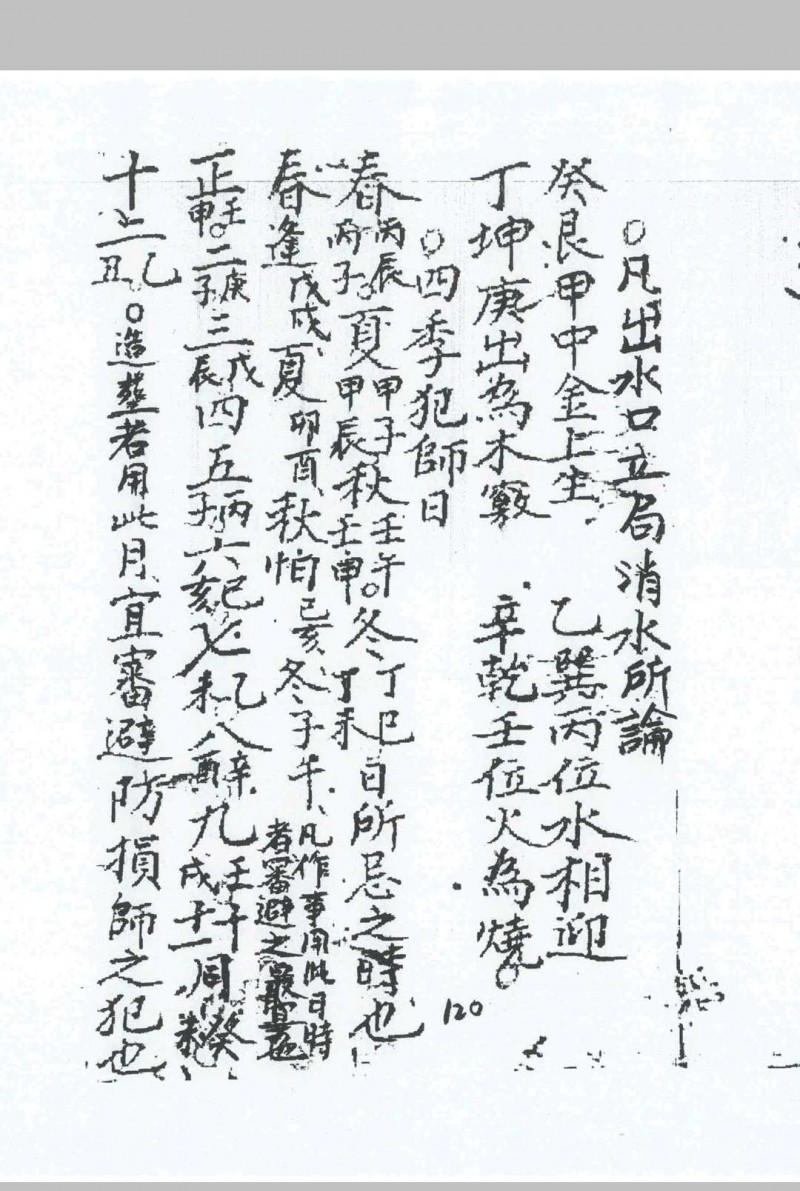 ○凡出水口立局消水所論
癸艮甲中金上生 乙巽丙位水相迎
丁坤庚出為木竅 辛乾壬位火為燒。
○四季犯師日
春丙辰丙子。夏甲子甲辰秋壬午壬申。冬丁巳丁未日所忌之時也
春逢戊戌夏卯酉秋怕己亥冬子午、凡作事用此日時者審避之最宜
正壬甲。二庚子三戊辰四五丙子六己亥七乙未八辛酉九壬戌十十一同癸未
十二乙丑。○造塟者用此月宜審避防損師之犯也
120